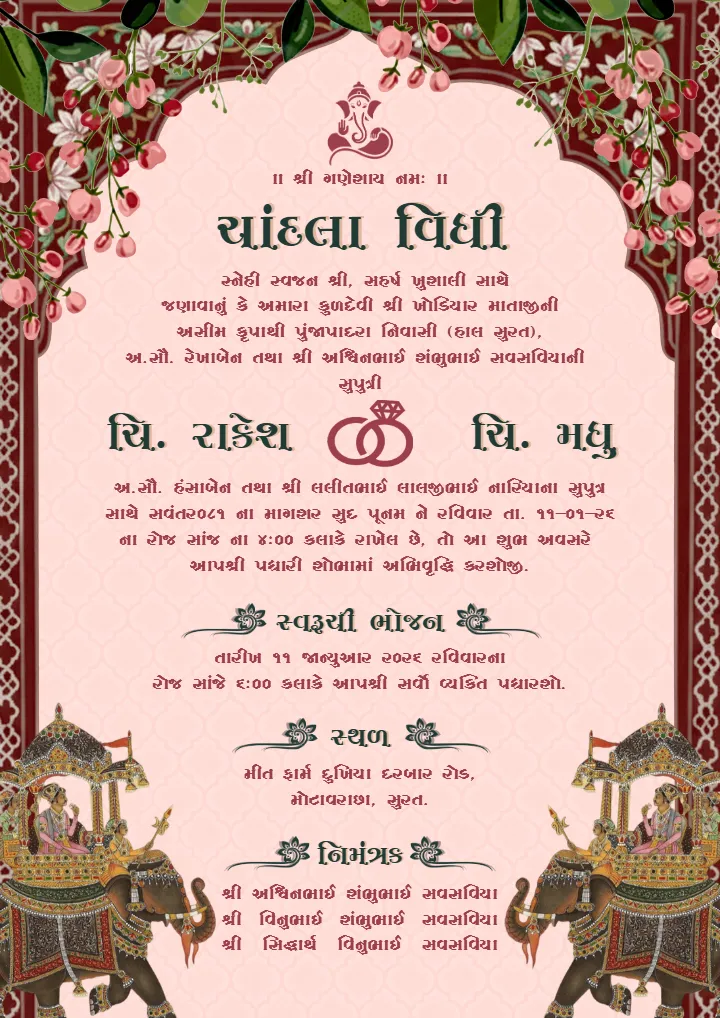 ॥ શ્રી ગણેશાય નમઃ ॥
ચાંદલા વિધી
સ્નેહી સ્વજન શ્રી, સહર્ષ ખુશાલી સાથે
જણાવાનું કે અમારા કુળદેવી શ્રી ખોડિયાર માતાજીની
અસીમ કૃપાથી પુંજાપાદરા નિવાસી (હાલ સુરત),
અ.સૌ. રેખાબેન તથા શ્રી અશ્વિનભાઈ શંભુભાઈ સવસવિયાની
સુપુત્રી
ચિ. રાકેશ ચિ. મધુ
અ.સૌ. હંસાબેન તથા શ્રી લલીતભાઈ લાલજીભાઈ નારિયાના સુપુત્ર
સાથે સવંત૨૦૮૧ ના માગશર સુદ પૂનમ ને રવિવાર તા. ૧૧-૦૧-૨૬
ના રોજ સાંજ ના ૪:૦૦ કલાકે રાખેલ છે, તો આ શુભ અવસરે
આપશ્રી પધારી શોભામાં અભિવૃદ્ધિ કરશોજી.
સ્વરૂચી ભોજન
તારીખ ૧૧ જાન્યુઆર ૨૦૨૬ રવિવારના
રોજ સાંજે ૬:૦૦ કલાકે આપશ્રી સર્વો વ્યકિત પધારશો.
સ્થળ
મીત ફાર્મ દુખિયા દરબાર રોડ,
મોટાવરાછા, સુરત.
નિમંત્રક
શ્રી અશ્વિનભાઈ શંભુભાઈ સવસવિયા
શ્રી વિનુભાઈ શંભુભાઈ સવસવિયા
શ્રી સિદ્ધાર્થ વિનુભાઈ સવસવિયા